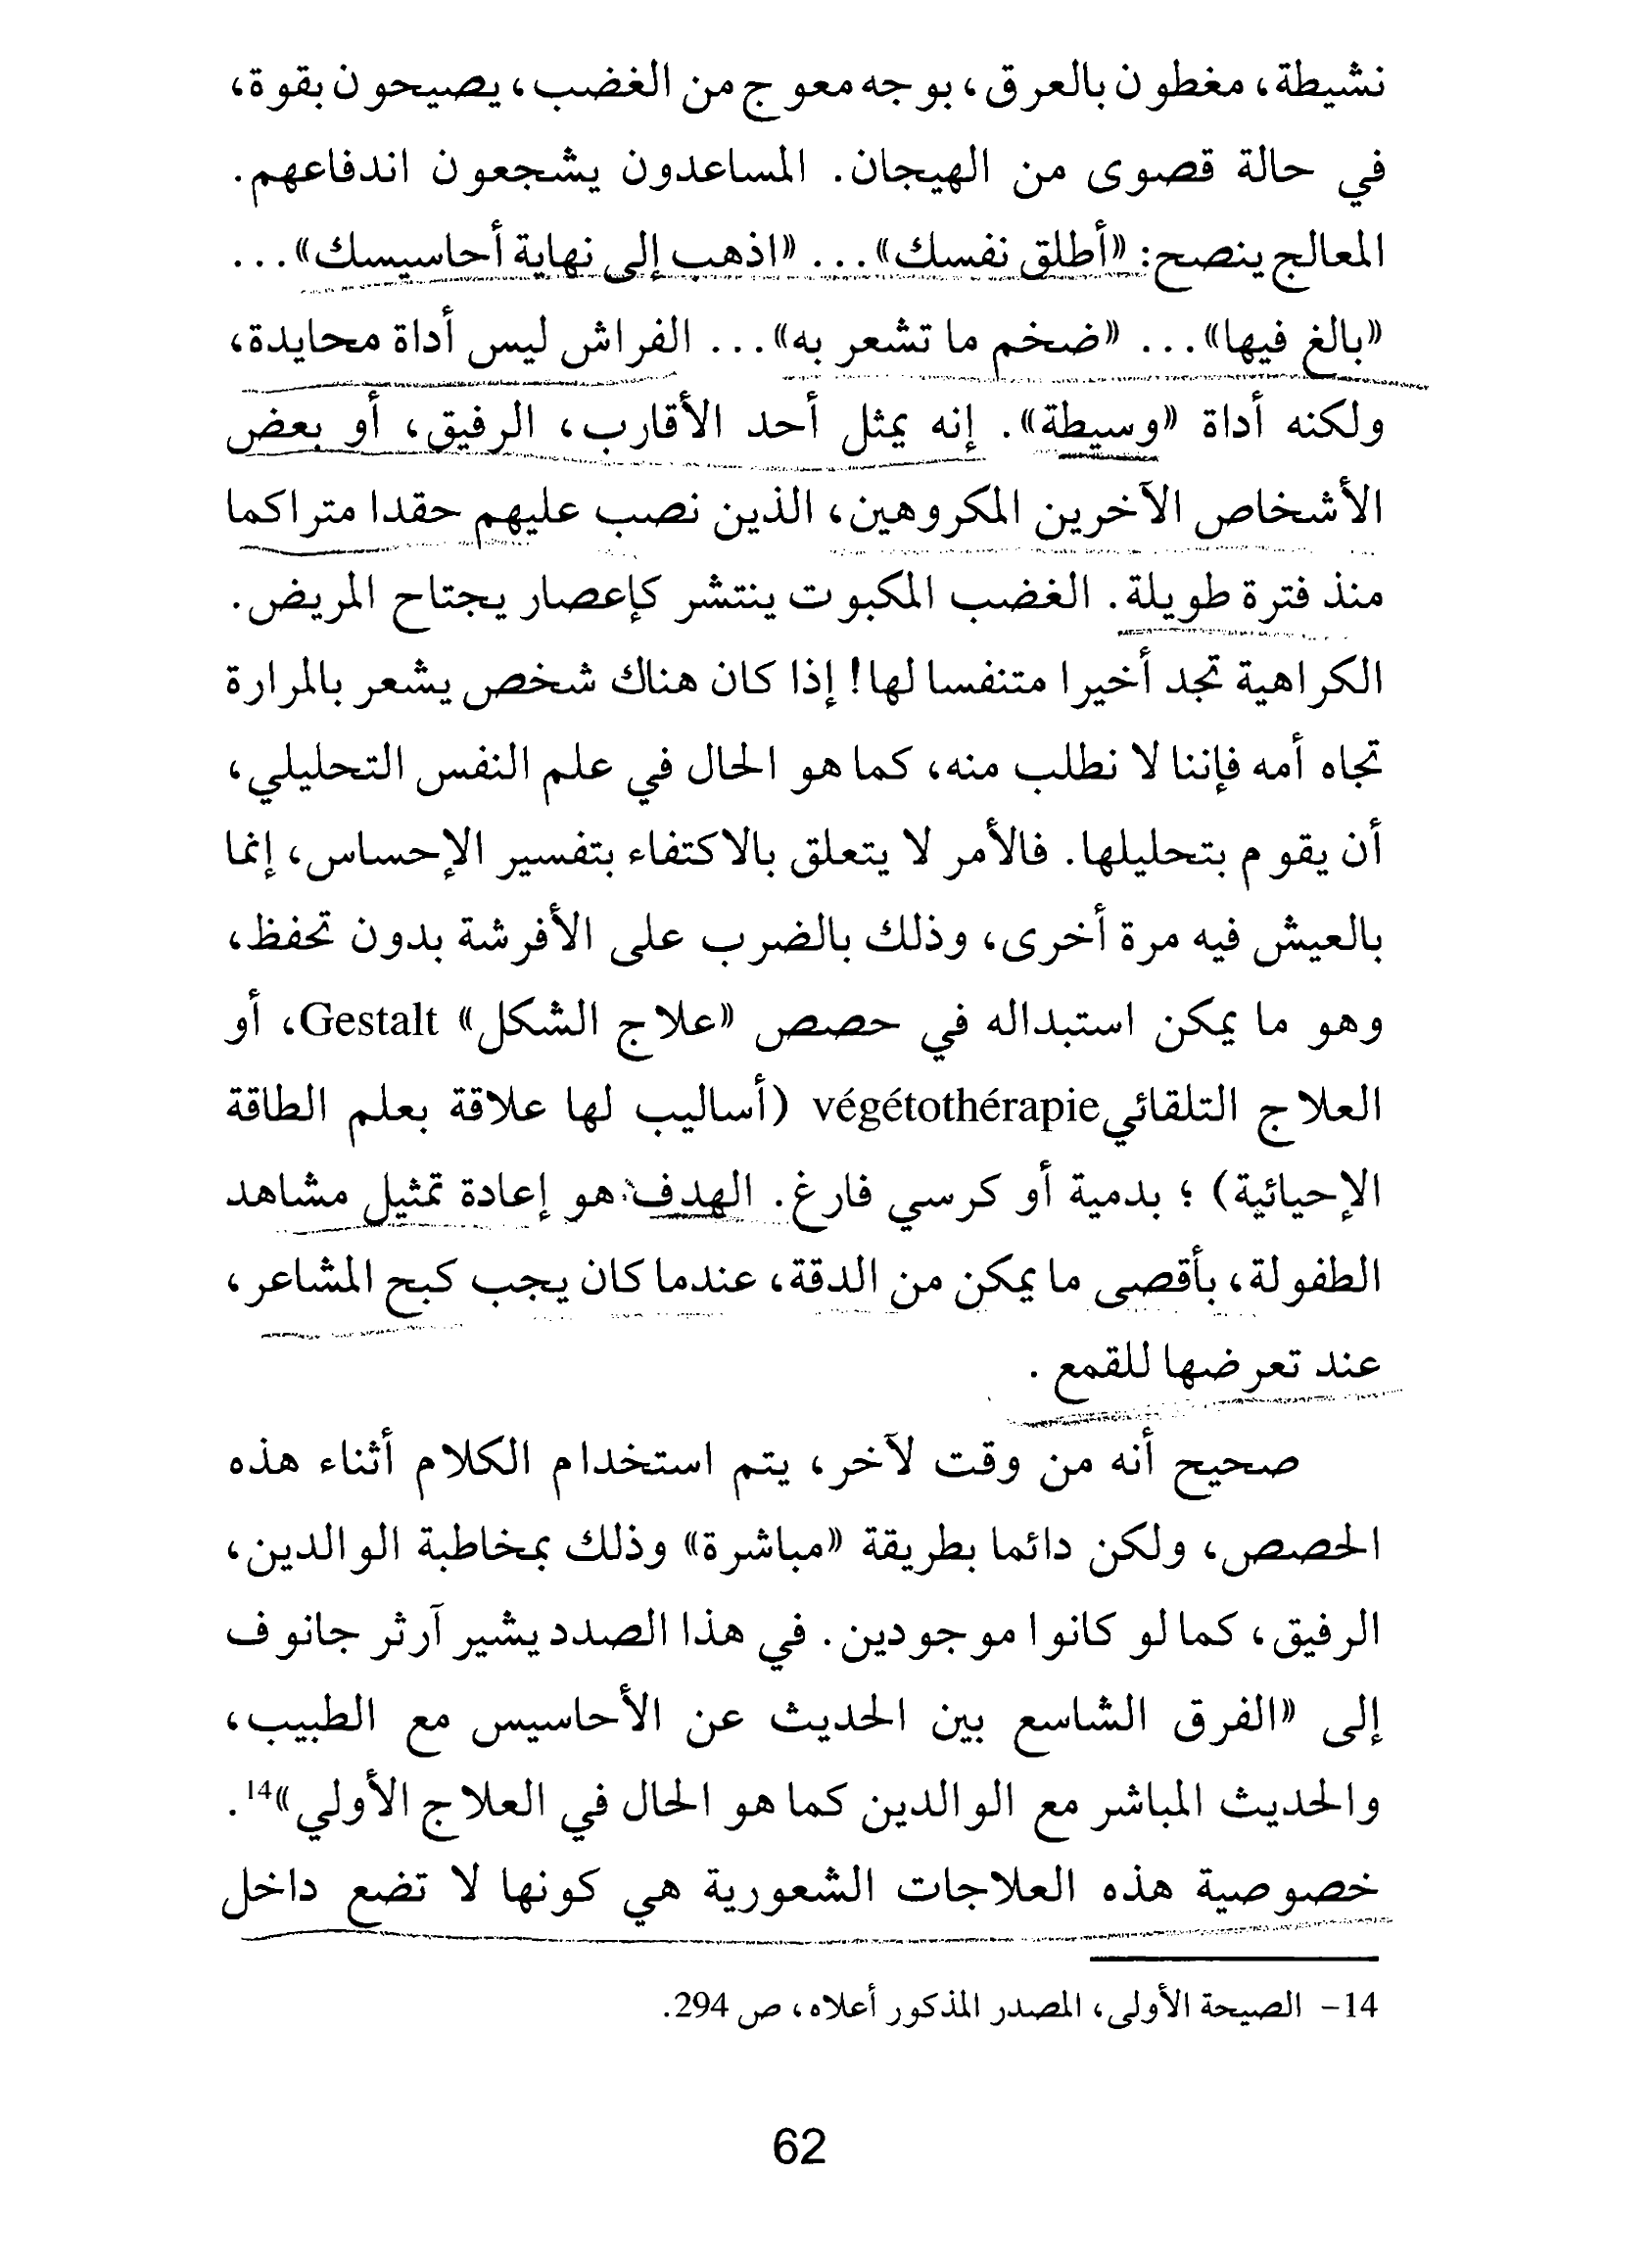 نشيطة، مغطون بالعرق، بوجه معوج من الغضب، يصيحون بقوة،
في حالة قصوى من الهيجان. المساعدون يشجعون اندفاعهم.
المعالج ينصح: «أطلق نفسك»... «اذهب إلى نهاية أحاسيسك»...
«بالغ فيها»... «ضخم ما تشعر به»... الفراش ليس أداة محايدة،
ولكنه أداة «وسيطة». إنه يمثل أحد الأقارب، الرفيق، أو بعض
الأشخاص الآخرين المكروهين، الذين نصب عليهم حقدا متراكما
منذ فترة طويلة. الغضب المكبوت ينتشر كإعصار يجتاح المريض.
الكراهية تجد أخيرا متنفسا لها! إذا كان هناك شخص يشعر بالمرارة
تجاه أمه فإننا لا نطلب منه، كما هو الحال في علم النفس التحليلي،
أن يقوم بتحليلها. فالأمر لا يتعلق بالاكتفاء بتفسير الإحساس، إنما
بالعيش فيه مرة أخرى، وذلك بالضرب على الأفرشة بدون تحفظ،
وهو ما يمكن استبداله في حصص «علاج الشكل» Gestalt، أو
العلاج التلقائي végétothérapie (أساليب لها علاقة بعلم الطاقة
الإحيائية) ؛ بدمية أو كرسي فارغ. الهدف هو إعادة تمثيل مشاهد
الطفولة، بأقصى ما يمكن من الدقة، عندما كان يجب كبح المشاعر،
عند تعرضها للقمع .
صحيح أنه من وقت لآخر، يتم استخدام الكلام أثناء هذه
الحصص، ولكن دائما بطريقة «مباشرة» وذلك بمخاطبة الوالدين،
الرفيق، كما لو كانوا موجودين. في هذا الصدد يشير آرثر جانوف
إلى «الفرق الشاسع بين الحديث عن الأحاسيس مع الطبيب،
والحديث المباشر مع الوالدين كما هو الحال في العلاج الأولي»14.
خصوصية هذه العلاجات الشعورية هي كونها لا تضع داخل
14- الصيحة الأولى، المصدر المذكور أعلاه، ص 294.
62